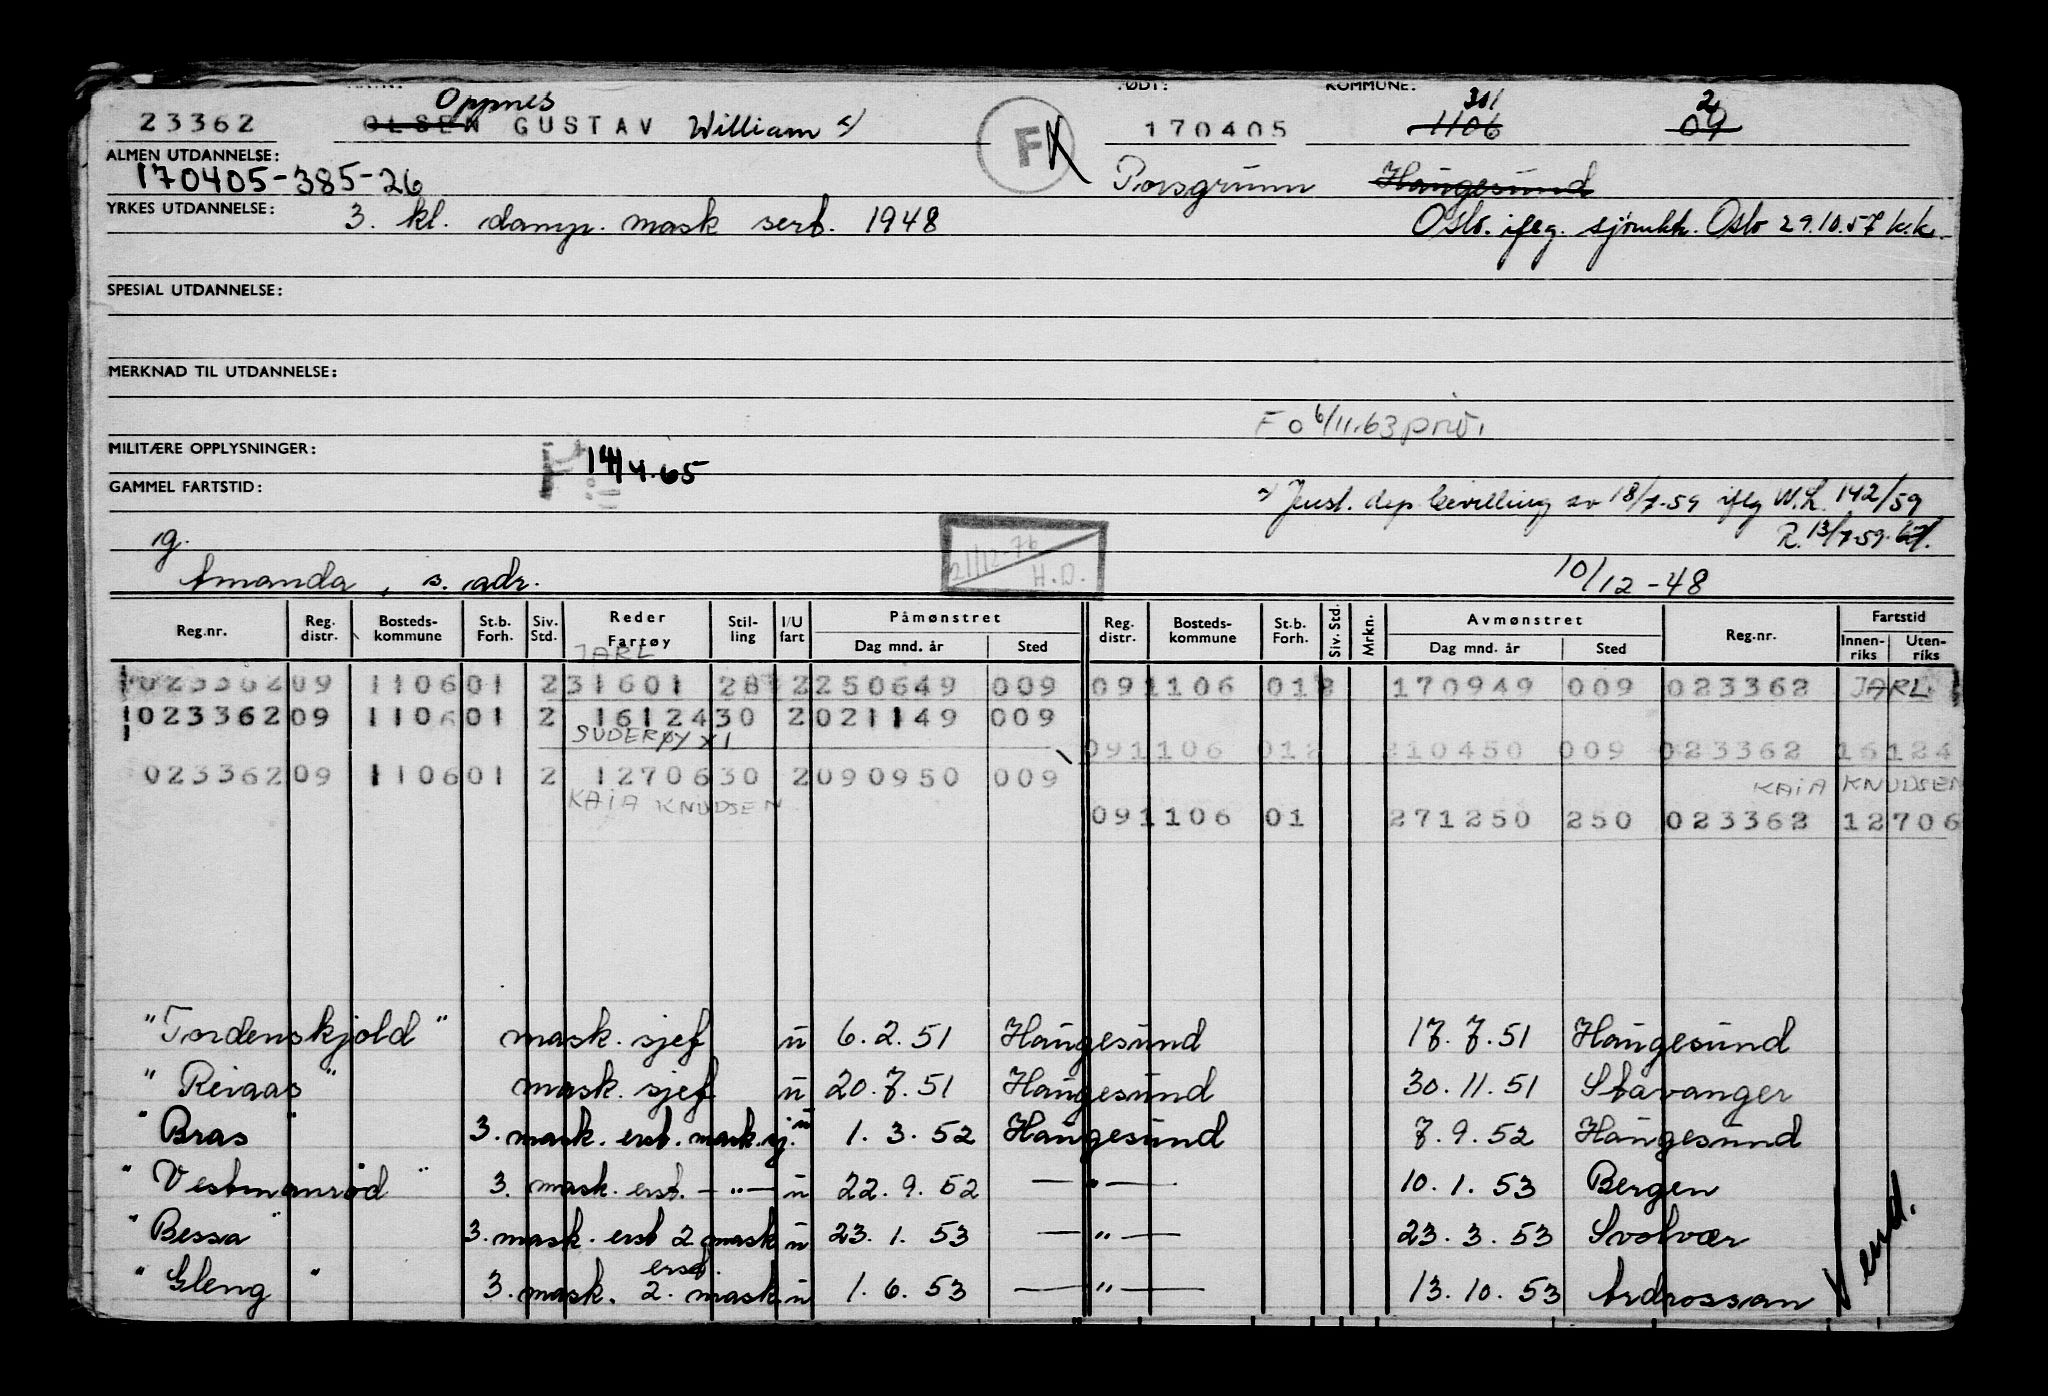 Oppnes 301 2
23362 OLSEN GUSTAV William x) FK FØDT: 170405 KOMMUNE: 1106 09
ALMEN UTDANNELSE:
170405-385-26 Porsgrunn Haugesund
YRKES UTDANNELSE: 3. kl. damp. mask sert. 1948 Oslo. iflg. sjømkk. Oslo 29.10.57 k.k.
SPESIAL UTDANNELSE:
MERKNAD TIL UTDANNELSE:
F O 6/11.63
MILITÆRE OPPLYSNINGER: 14/4.65
GAMMEL FARTSTID: x) Just. dep. bevilling av 18/7-59 iflg W.L. 142/59
R. 13/7-59.
ig. 21/12-76
Amanda, s. adr. H.D. 10/12-48
Reg.nr. Reg. distr. Bosteds-kommune St.b. Forh. Siv. Std. Reder Fartøy Stil-ling I/U fart Påmønstret Dag mnd. år Sted Reg. distr. Bosteds-kommune St.b. Forh. Siv. Std. Mrkn. Avmønstret Dag mnd. år Sted Reg.nr. Fartstid Innen-riks Uten-riks
JARL
023362 09 1106 01 2 31601 28 2 250649 009 09 1106 01 2 170949 009 023362 JARL
023362 09 1106 01 2 16124 30 2 021149 009
SUDERØY XI
09 1106 01 2 210450 009 023362 16124
023362 09 1106 01 2 12706 30 2 090950 009 KAIA KNUDSEN
KAIA KNUDSEN
09 1106 01 271250 250 023362 12706
"Tordenskjold" mask. sjef u 6.2.51 Haugesund 17.7.51 Haugesund
"Reiaas" mask. sjef u 20.7.51 Haugesund 30.11.51 Stavanger
"Bras" 3. mask. erst. mask.sj. u 1.3.52 Haugesund 7.9.52 Haugesund
"Vestmanrød" 3. mask. erst. — " — u 22.9.52 — " — 10.1.53 Bergen
"Bessa" 3. mask. erst 2 mask u 23.1.53 — " — 23.3.53 Svolvær
erst.
"Gleng" 3. mask. 2. mask. u 1.6.53 — " — 13.10.53 Ardrossan
Vend.